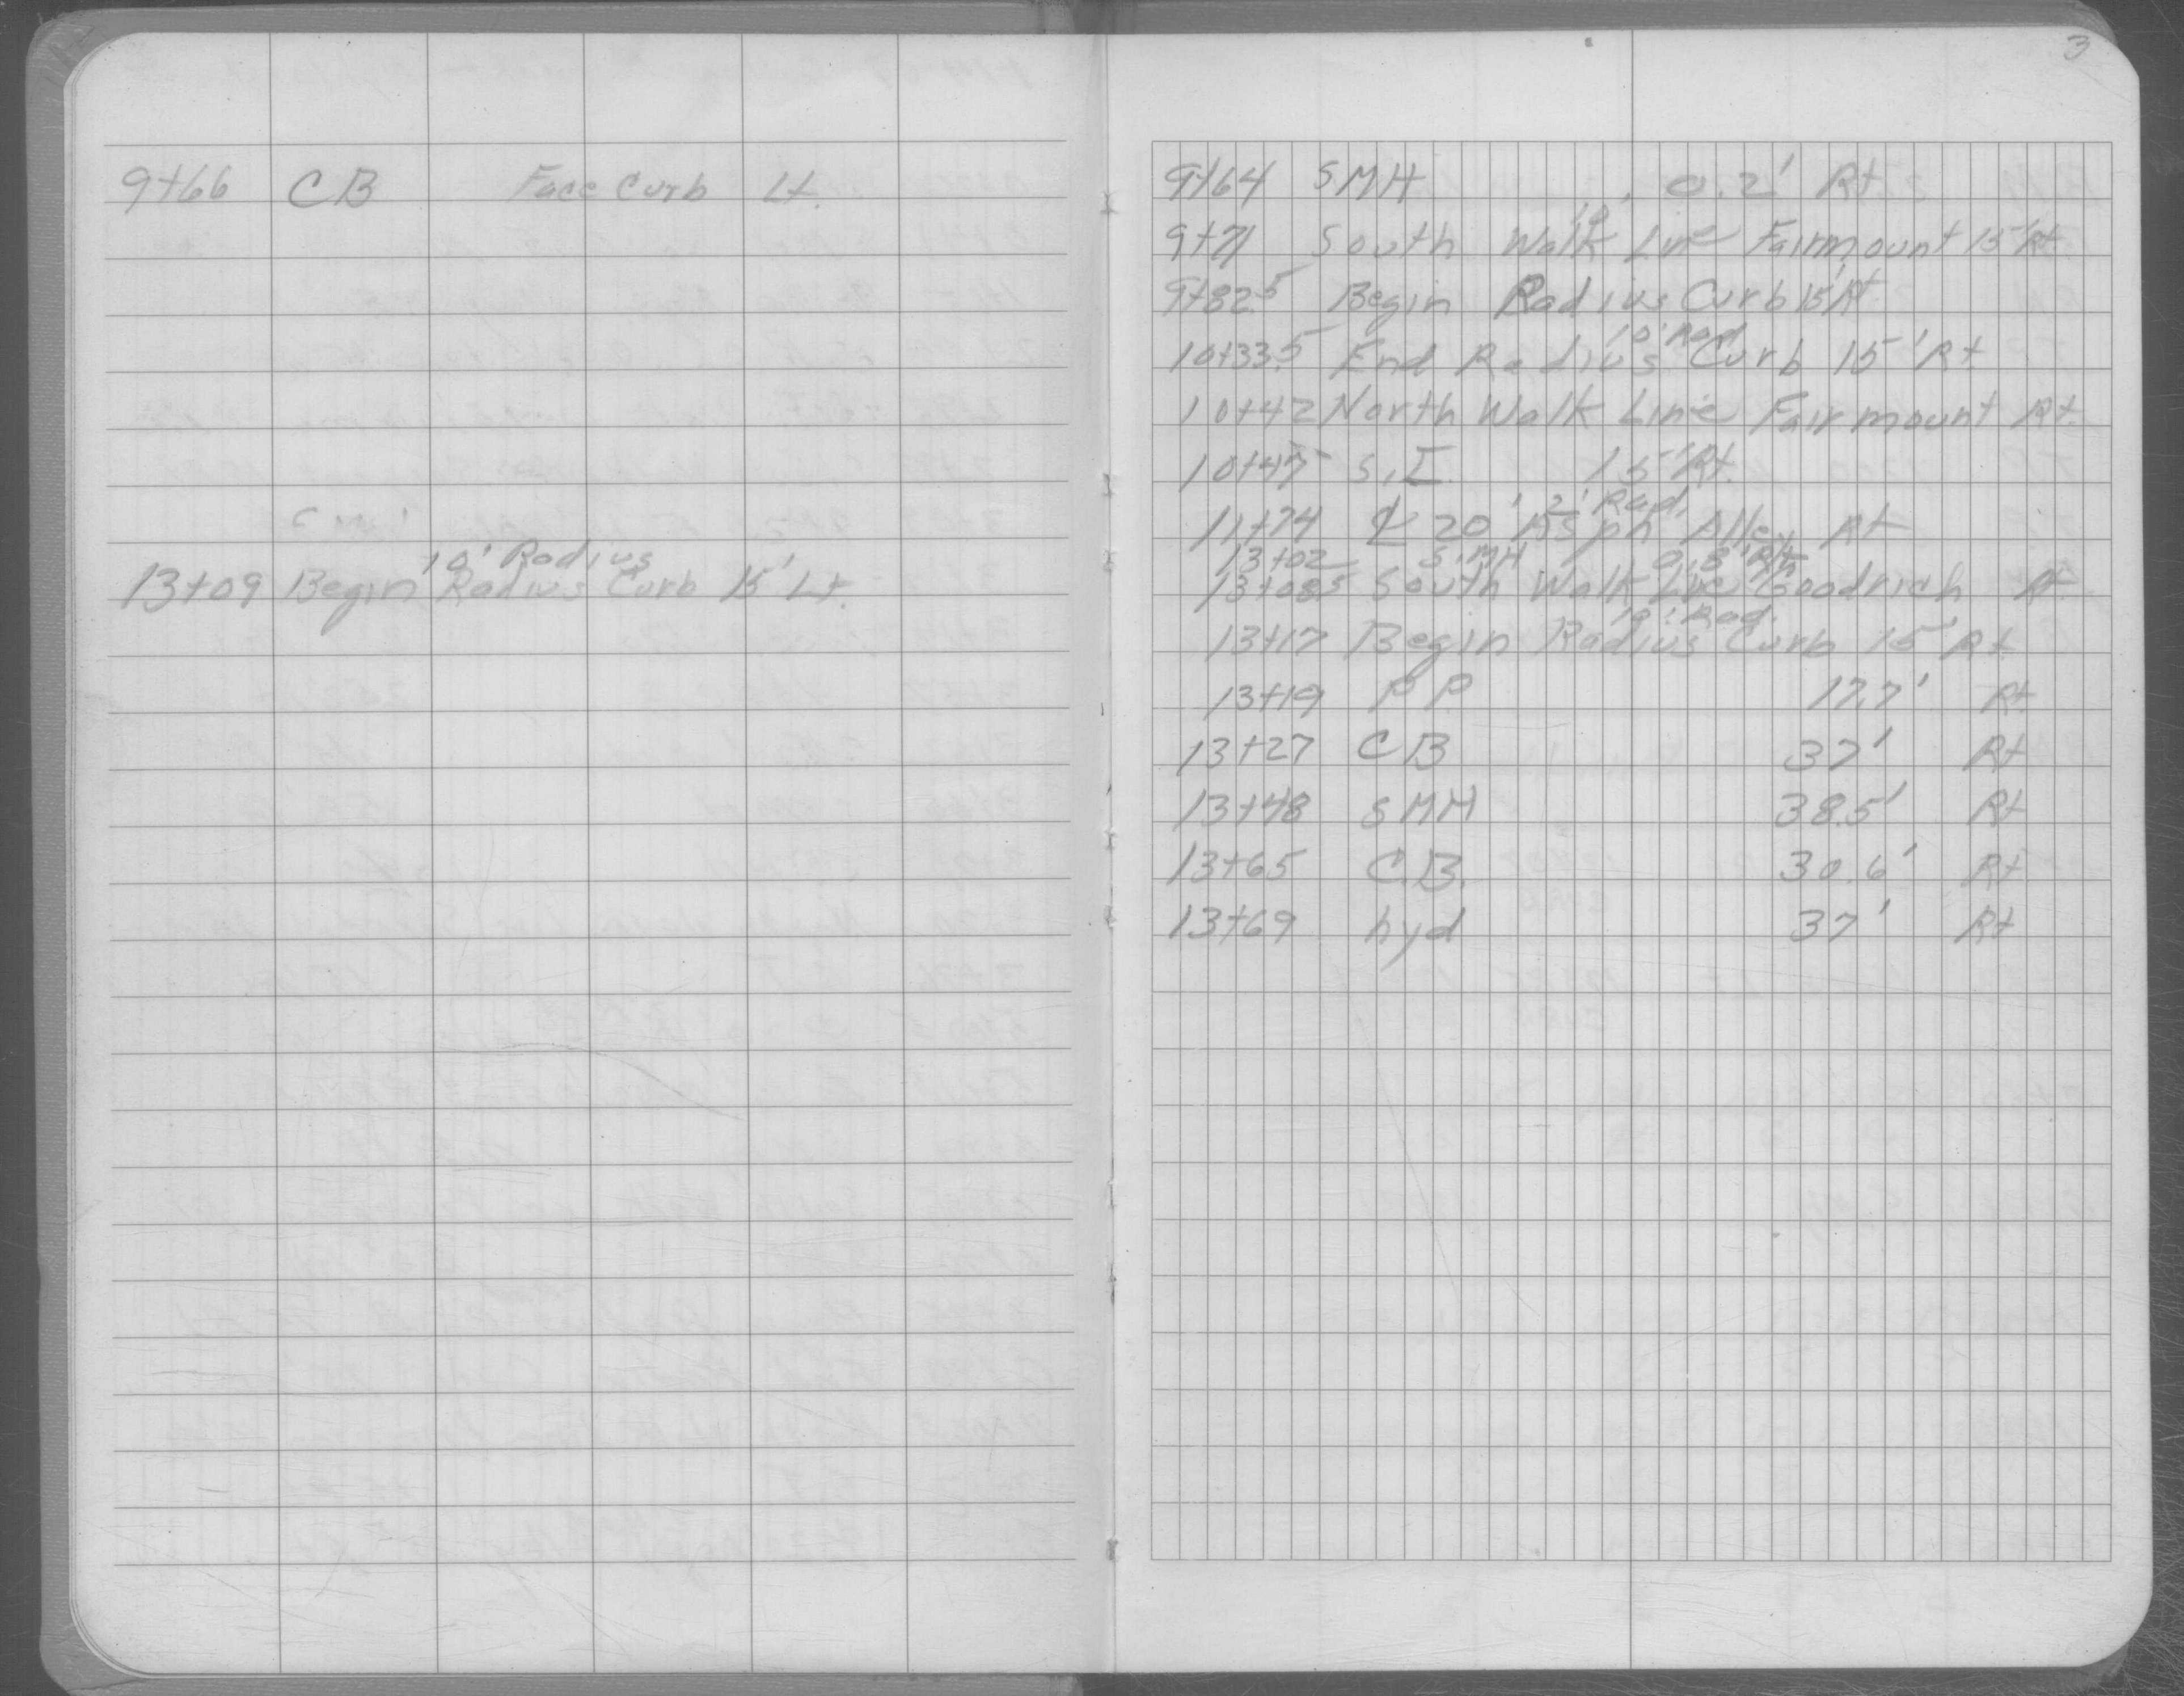 9+66 CB Face Curb Lt.
10' Radius
13+09 Begin Radius Curb 15' Lt.
3
9+64 SMH 0.2' Rt
10'
9+71 South Walk Line Fairmount 15' Rt
9+82.5 Begin Radius Curb 15' Rt
10' Rad
10+33.5 End Radius Curb 15' Rt
10+42 North Walk Line Fairmount Rt.
10+47 S.I. 15' Rt.
2' Rad.
11+74 ℄ 20' Asph Alley Rt
13+02 S.MH 0.8' Rt
13+08.5 South Walk Line Goodrich Rt.
10' Rad.
13+17 Begin Radius Curb 15' Rt
13+19 PP 17.7' Rt
13+27 CB 37' Rt
13+48 SMH 38.5' Rt
13+65 C.B. 30.6' Rt
13+69 hyd 37' Rt